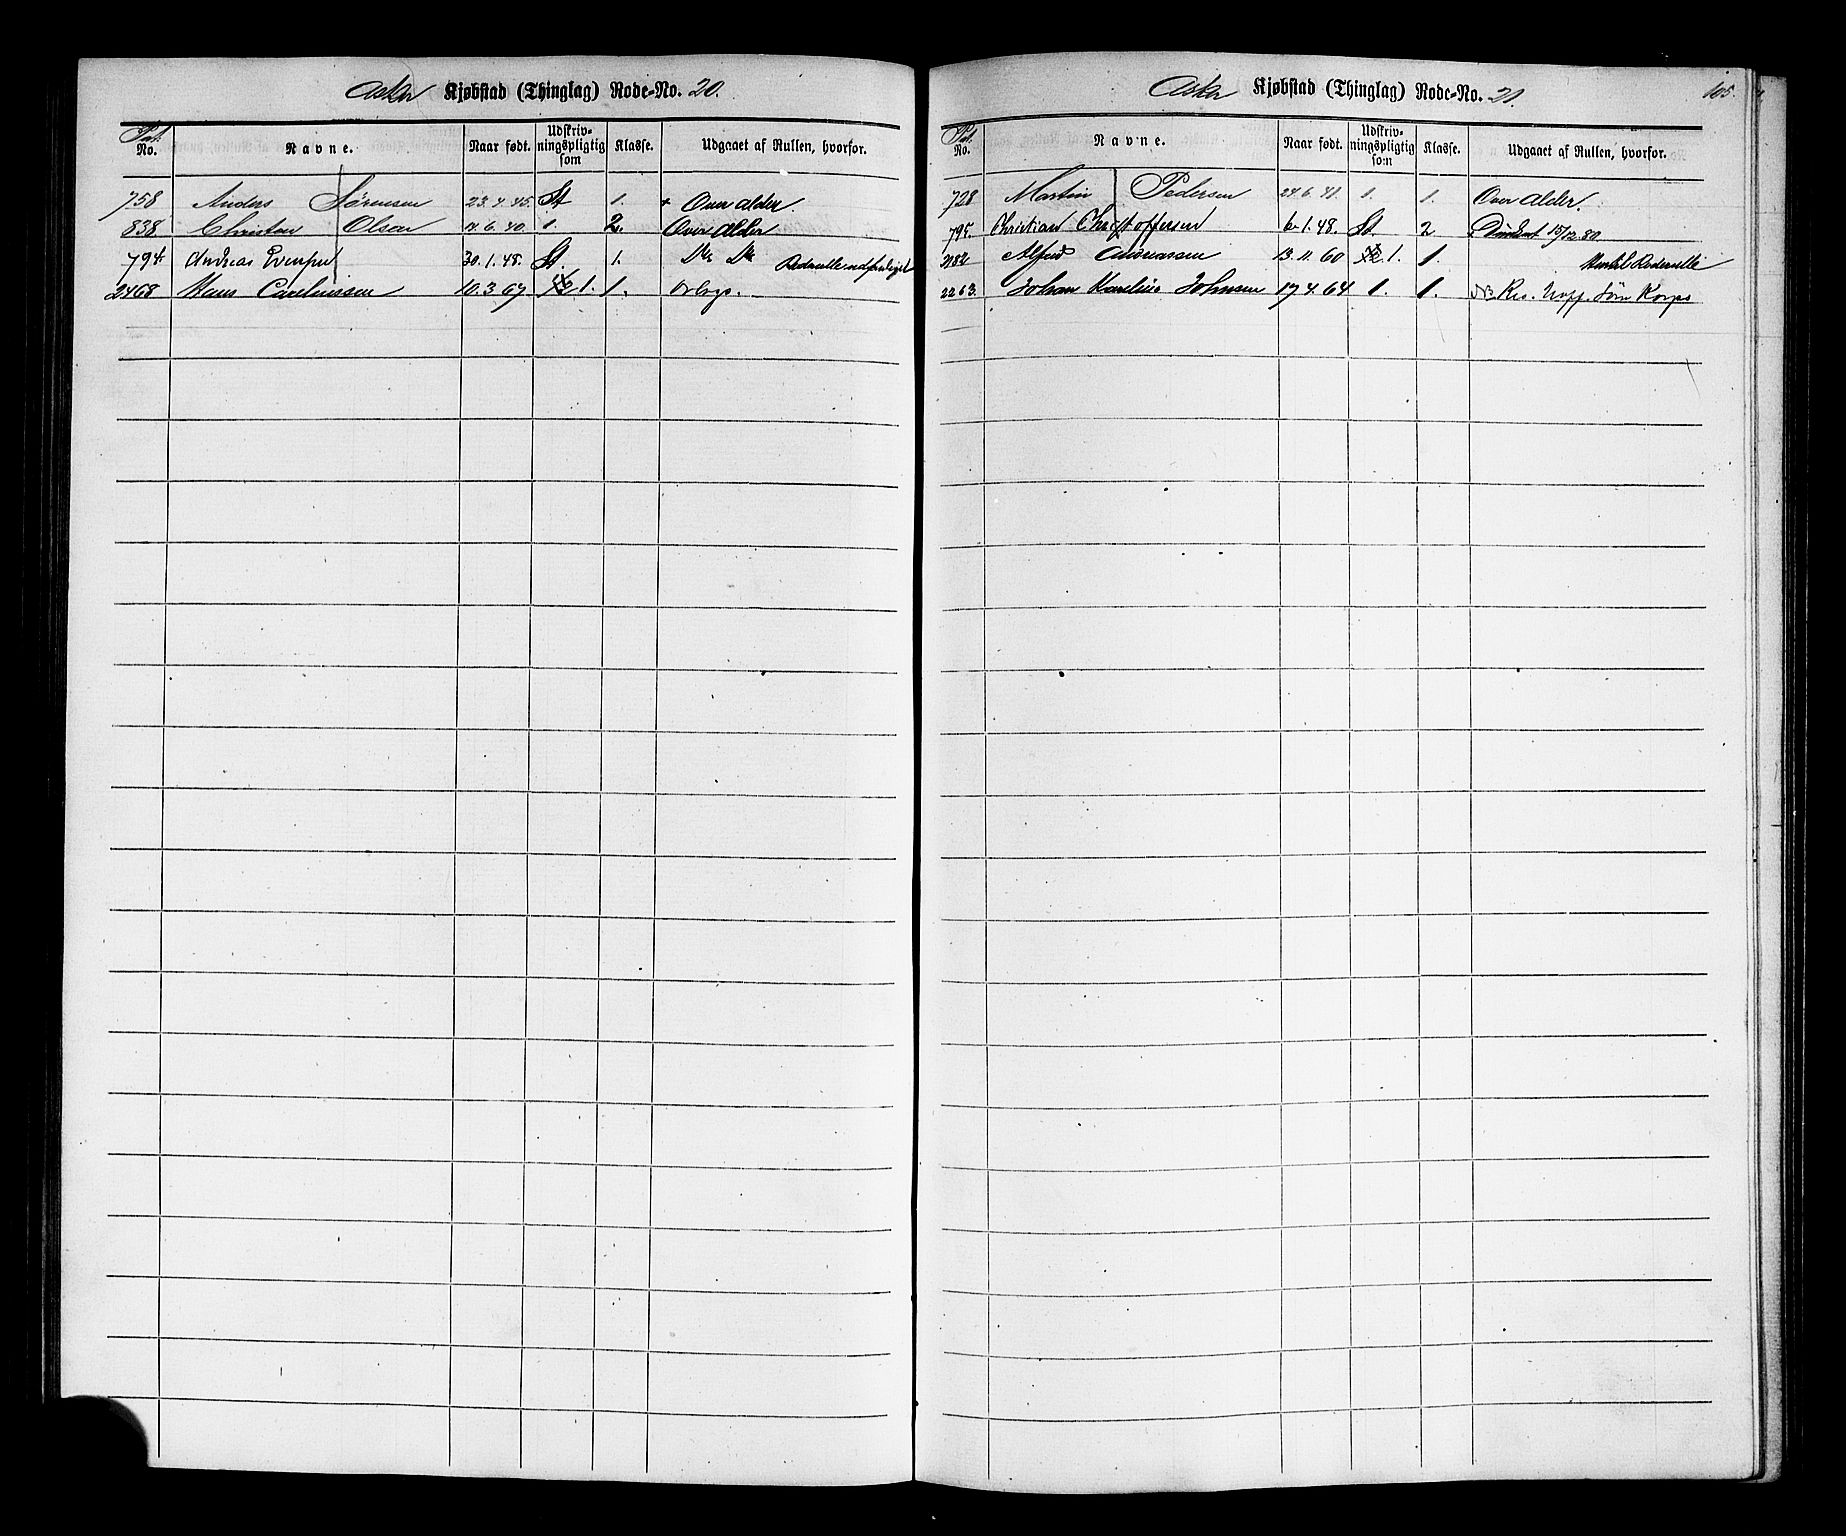 Asker Kjøbstad (Thinglag) Rode-No. 20.
Pat. No. Navne. Naar født. Udskriv-ningspligtig som Klasse. Udgaaet af Rullen, hvorfor.
758 Anders Sørensen 23.4.45. St 1. + Over alder.
838 Christen Olsen 11.6.40. 1. 2. Over alder
794 Andreas Evensen 30.1.48. St. 1. Do Do
Rederulle
2468 Hans Careliussen 10.3.67 1. 1.
Asker Kjøbstad (Thinglag) Rode-No. 21. 105.
Pat. No. Navne. Naar født. Udskriv-ningspligtig som Klasse. Udgaaet af Rullen, hvorfor.
728 Martin Pedersen 24.6.41. 1. 1. Over alder.
795. Christian Christoffersen 6.1.48. St. 2 15/12 80
2182 Alfred Andreassen 13.11.60 1. 1. Rederulle
2263. Johan Karelius Johnsen 17.4.64 1. 1. NB. Res. Korps